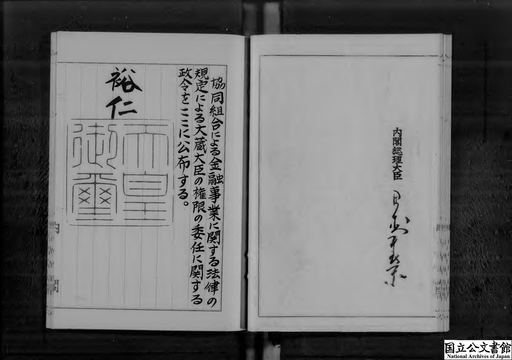 協同組合による金融事業に関する法律の
規定による大蔵大臣の権限の委任に関する
政令をここに公布する。
裕仁
天皇
御璽
内閣総理大臣
国立公文書館
National Archives of Japan